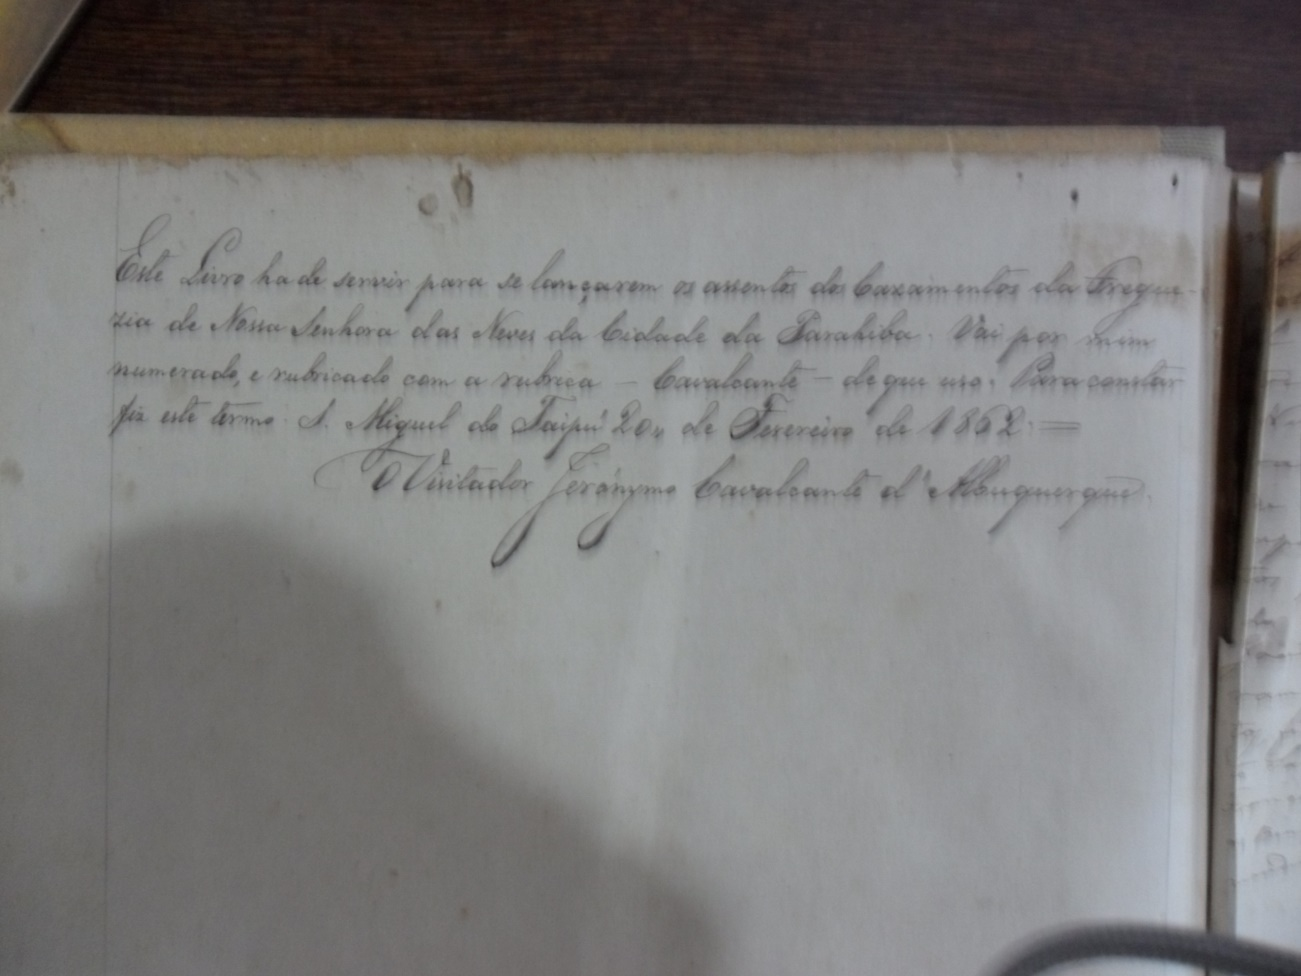 Este Livro ha de servir para se lançarem os assentos dos Cazamentos da Fregue-
zia de Nossa Senhora das Neves da Cidade da Parahiba. Vai por mim
numerado, e rubricado com a rubrica – Cavalcante – de que uso. Para constar
fiz este termo. S. Miguel do Taipú 20,, de Fevereiro de 1862. =
O Vizitador Jerónymo Cavalcante d'Albuquerque.